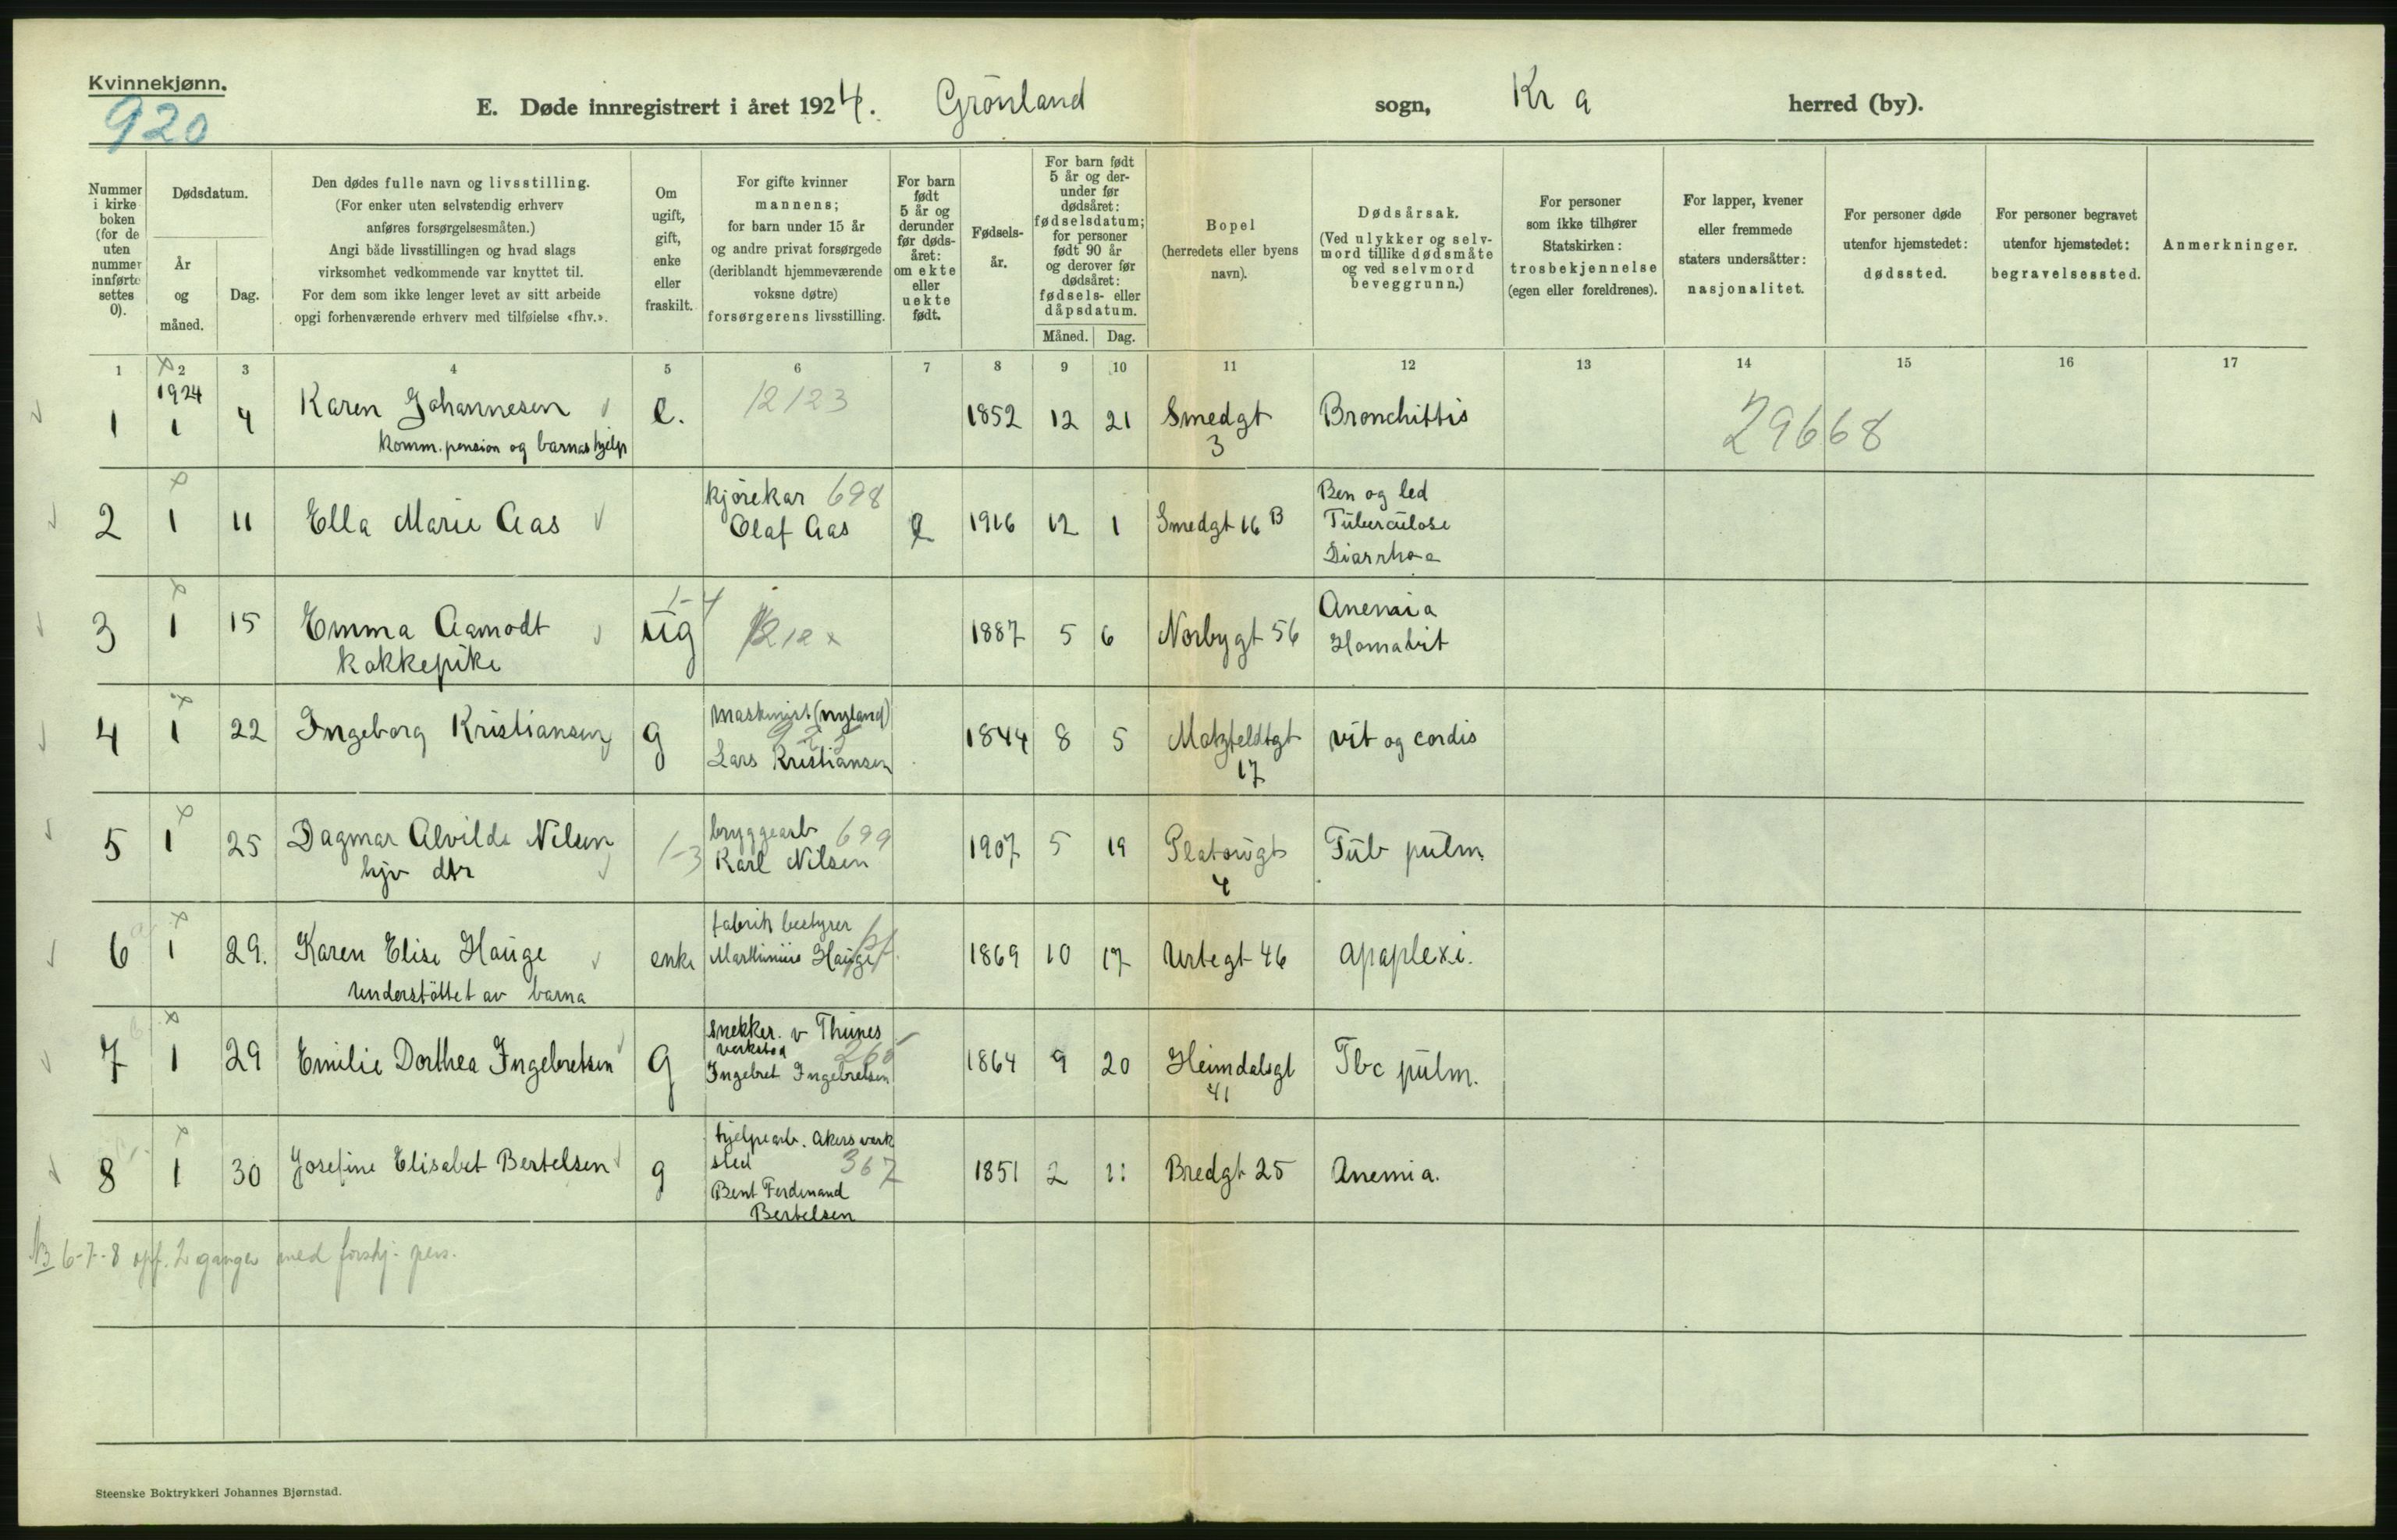 Kvinnekjønn.
920
E. Døde innregistrert i året 1924. Grönland sogn, Kr a herred (by).
Nummer i kirkeboken (for de uten nummer innførte settes 0).
Dødsdatum.
År og måned.
Dag.
Den dødes fulle navn og livsstilling.
(For enker uten selvstendig erhverv anføres forsørgelsesmåten.)
Angi både livsstillingen og hvad slags virksomhet vedkommende var knyttet til.
For dem som ikke lenger levet av sitt arbeide opgi forhenværende erhverv med tilføielse «fhv.».
Om ugift, gift, enke eller fraskilt.
For gifte kvinner mannens; for barn under 15 år og andre privat forsørgede (deriblandt hjemmeværende voksne døtre) forsørgerens livsstilling.
For barn født 5 år og derunder før dødsåret: om ekte eller uekte født.
Fødselsår.
For barn født 5 år og derunder før dødsåret: fødselsdatum; for personer født 90 år og derover før dødsåret: fødsels- eller dåpsdatum.
Måned. Dag.
Bopel (herredets eller byens navn).
Dødsårsak. (Ved ulykker og selvmord tillike dødsmåte og ved selvmord beveggrunn.)
For personer som ikke tilhører Statskirken: trosbekjennelse (egen eller foreldrenes).
For lapper, kvener eller fremmede staters undersåtter: nasjonalitet.
For personer døde utenfor hjemstedet: dødssted.
For personer begravet utenfor hjemstedet: begravelsessted.
Anmerkninger.
1 2 3 4 5 6 7 8 9 10 11 12 13 14 15 16 17
1924
1 1 4 Karen Johannesen e. 12123 1852 12 21 Smedgt 3 Bronchittis 29668
komm. pension og barnas hjelp
2 1 11 Ella Marie Aas kjörekar 698 Olaf Aas e 1916 12 1 Smedgt 16 B Ben og led Tüberculose Diarrhoa
3 1 15 Emma Aamodt ug 1-4 1212 x 1887 5 6 Norbygt 56 Anemia
kokkepike
4 1 22 Ingeborg Kristiansen g maskinist (nyland) Lars Kristiansen 1844 8 5 Motzfeldtgt 17 vit og cordis
5 1 25 Dagmar Alvilde Nilsen 1-3 bryggearb 699 Karl Nilsen 1907 5 19 Platougt 4 Tüb pülm.
hjv dtr
6 1 29. Karen Elise Haüge enke fabrik bestyrer Marthinius Haüge 1869 10 17 Urtegt 46 apaplexi.
Understöttet av barna
7 1 29 Emilie Dorthea Ingebretsen g snekker. v Thünes verksted 260 Ingebret Ingebretsen 1864 9 20 Heimdalsgt 41 Tbc pülm.
8 1 30 Josefine Elisabet Bertelsen g hjelpearb. Akers værksted 367 Bent Ferdinand Bertelsen 1851 2 11 Bredgt 25 Anemia.
NB 6-7-8 opf. 2 ganger med forskj. pers.
Steenske Boktrykkeri Johannes Bjørnstad.